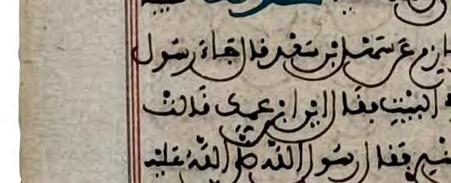 حازم عن سهل بن سعد قال جاء رسول
البيت فقال اين ابن عمك قالت
فقال رسول الله صلى الله عليه